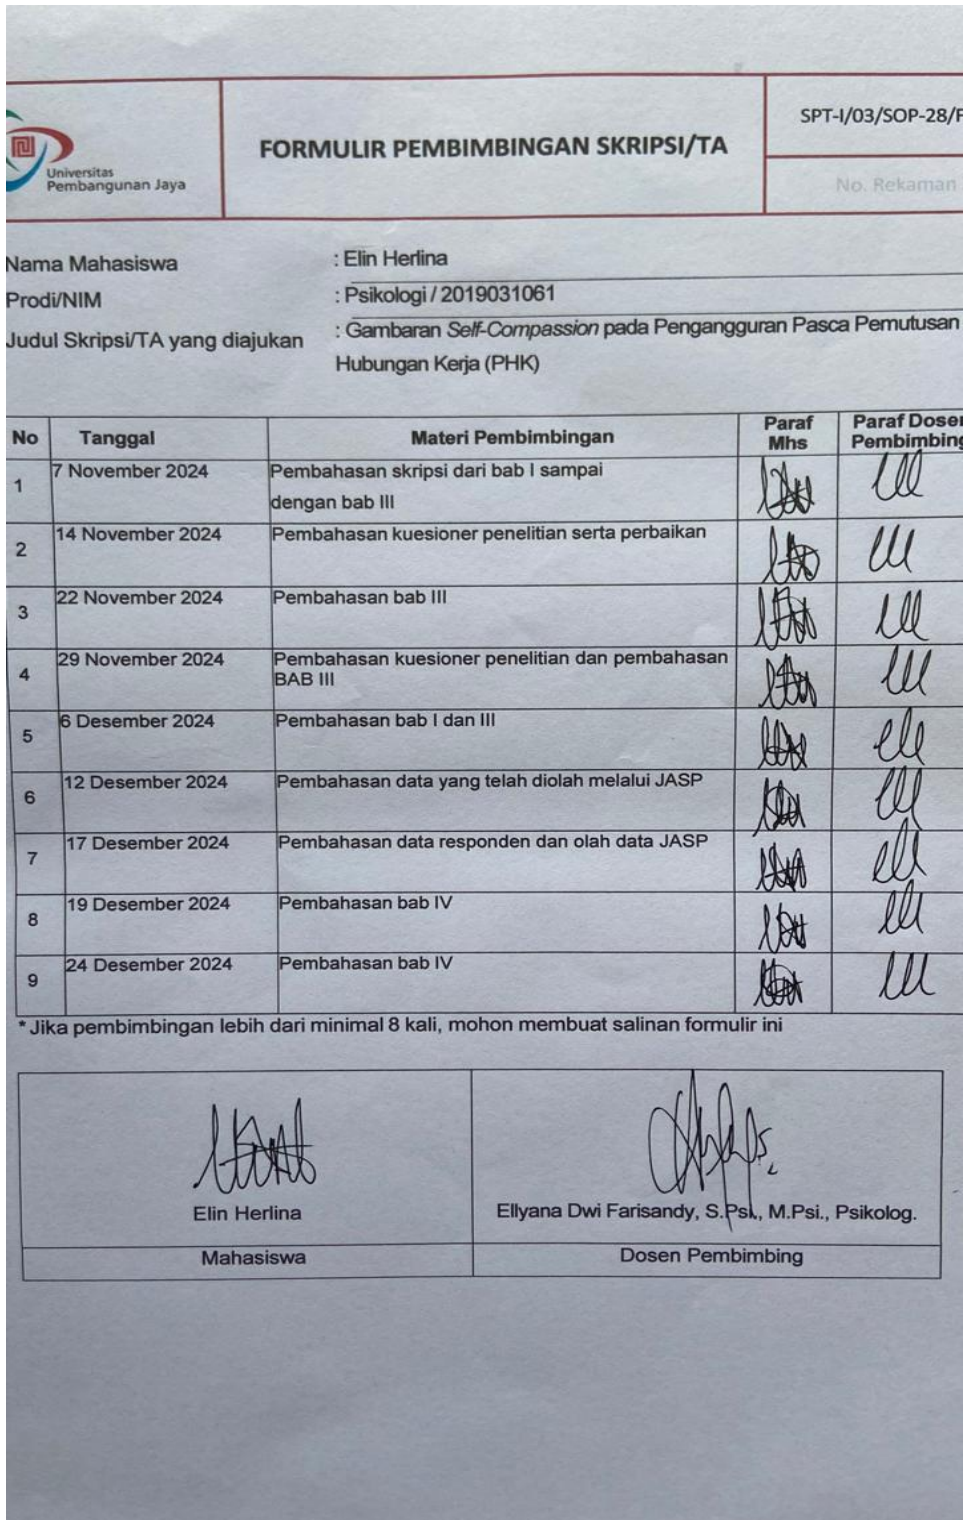 Universitas
Pembangunan Jaya
FORMULIR PEMBIMBINGAN SKRIPSI/TA
SPT-I/03/SOP-28/F
No. Rekaman
Nama Mahasiswa : Elin Herlina
Prodi/NIM : Psikologi / 2019031061
Judul Skripsi/TA yang diajukan : Gambaran Self-Compassion pada Pengangguran Pasca Pemutusan
Hubungan Kerja (PHK)
No Tanggal Materi Pembimbingan Paraf Mhs Paraf Dosen Pembimbing
1 7 November 2024 Pembahasan skripsi dari bab I sampai
dengan bab III
2 14 November 2024 Pembahasan kuesioner penelitian serta perbaikan
3 22 November 2024 Pembahasan bab III
4 29 November 2024 Pembahasan kuesioner penelitian dan pembahasan
BAB III
5 6 Desember 2024 Pembahasan bab I dan III
6 12 Desember 2024 Pembahasan data yang telah diolah melalui JASP
7 17 Desember 2024 Pembahasan data responden dan olah data JASP
8 19 Desember 2024 Pembahasan bab IV
9 24 Desember 2024 Pembahasan bab IV
* Jika pembimbingan lebih dari minimal 8 kali, mohon membuat salinan formulir ini
Elin Herlina
Ellyana Dwi Farisandy, S.Psi., M.Psi., Psikolog.
Mahasiswa
Dosen Pembimbing